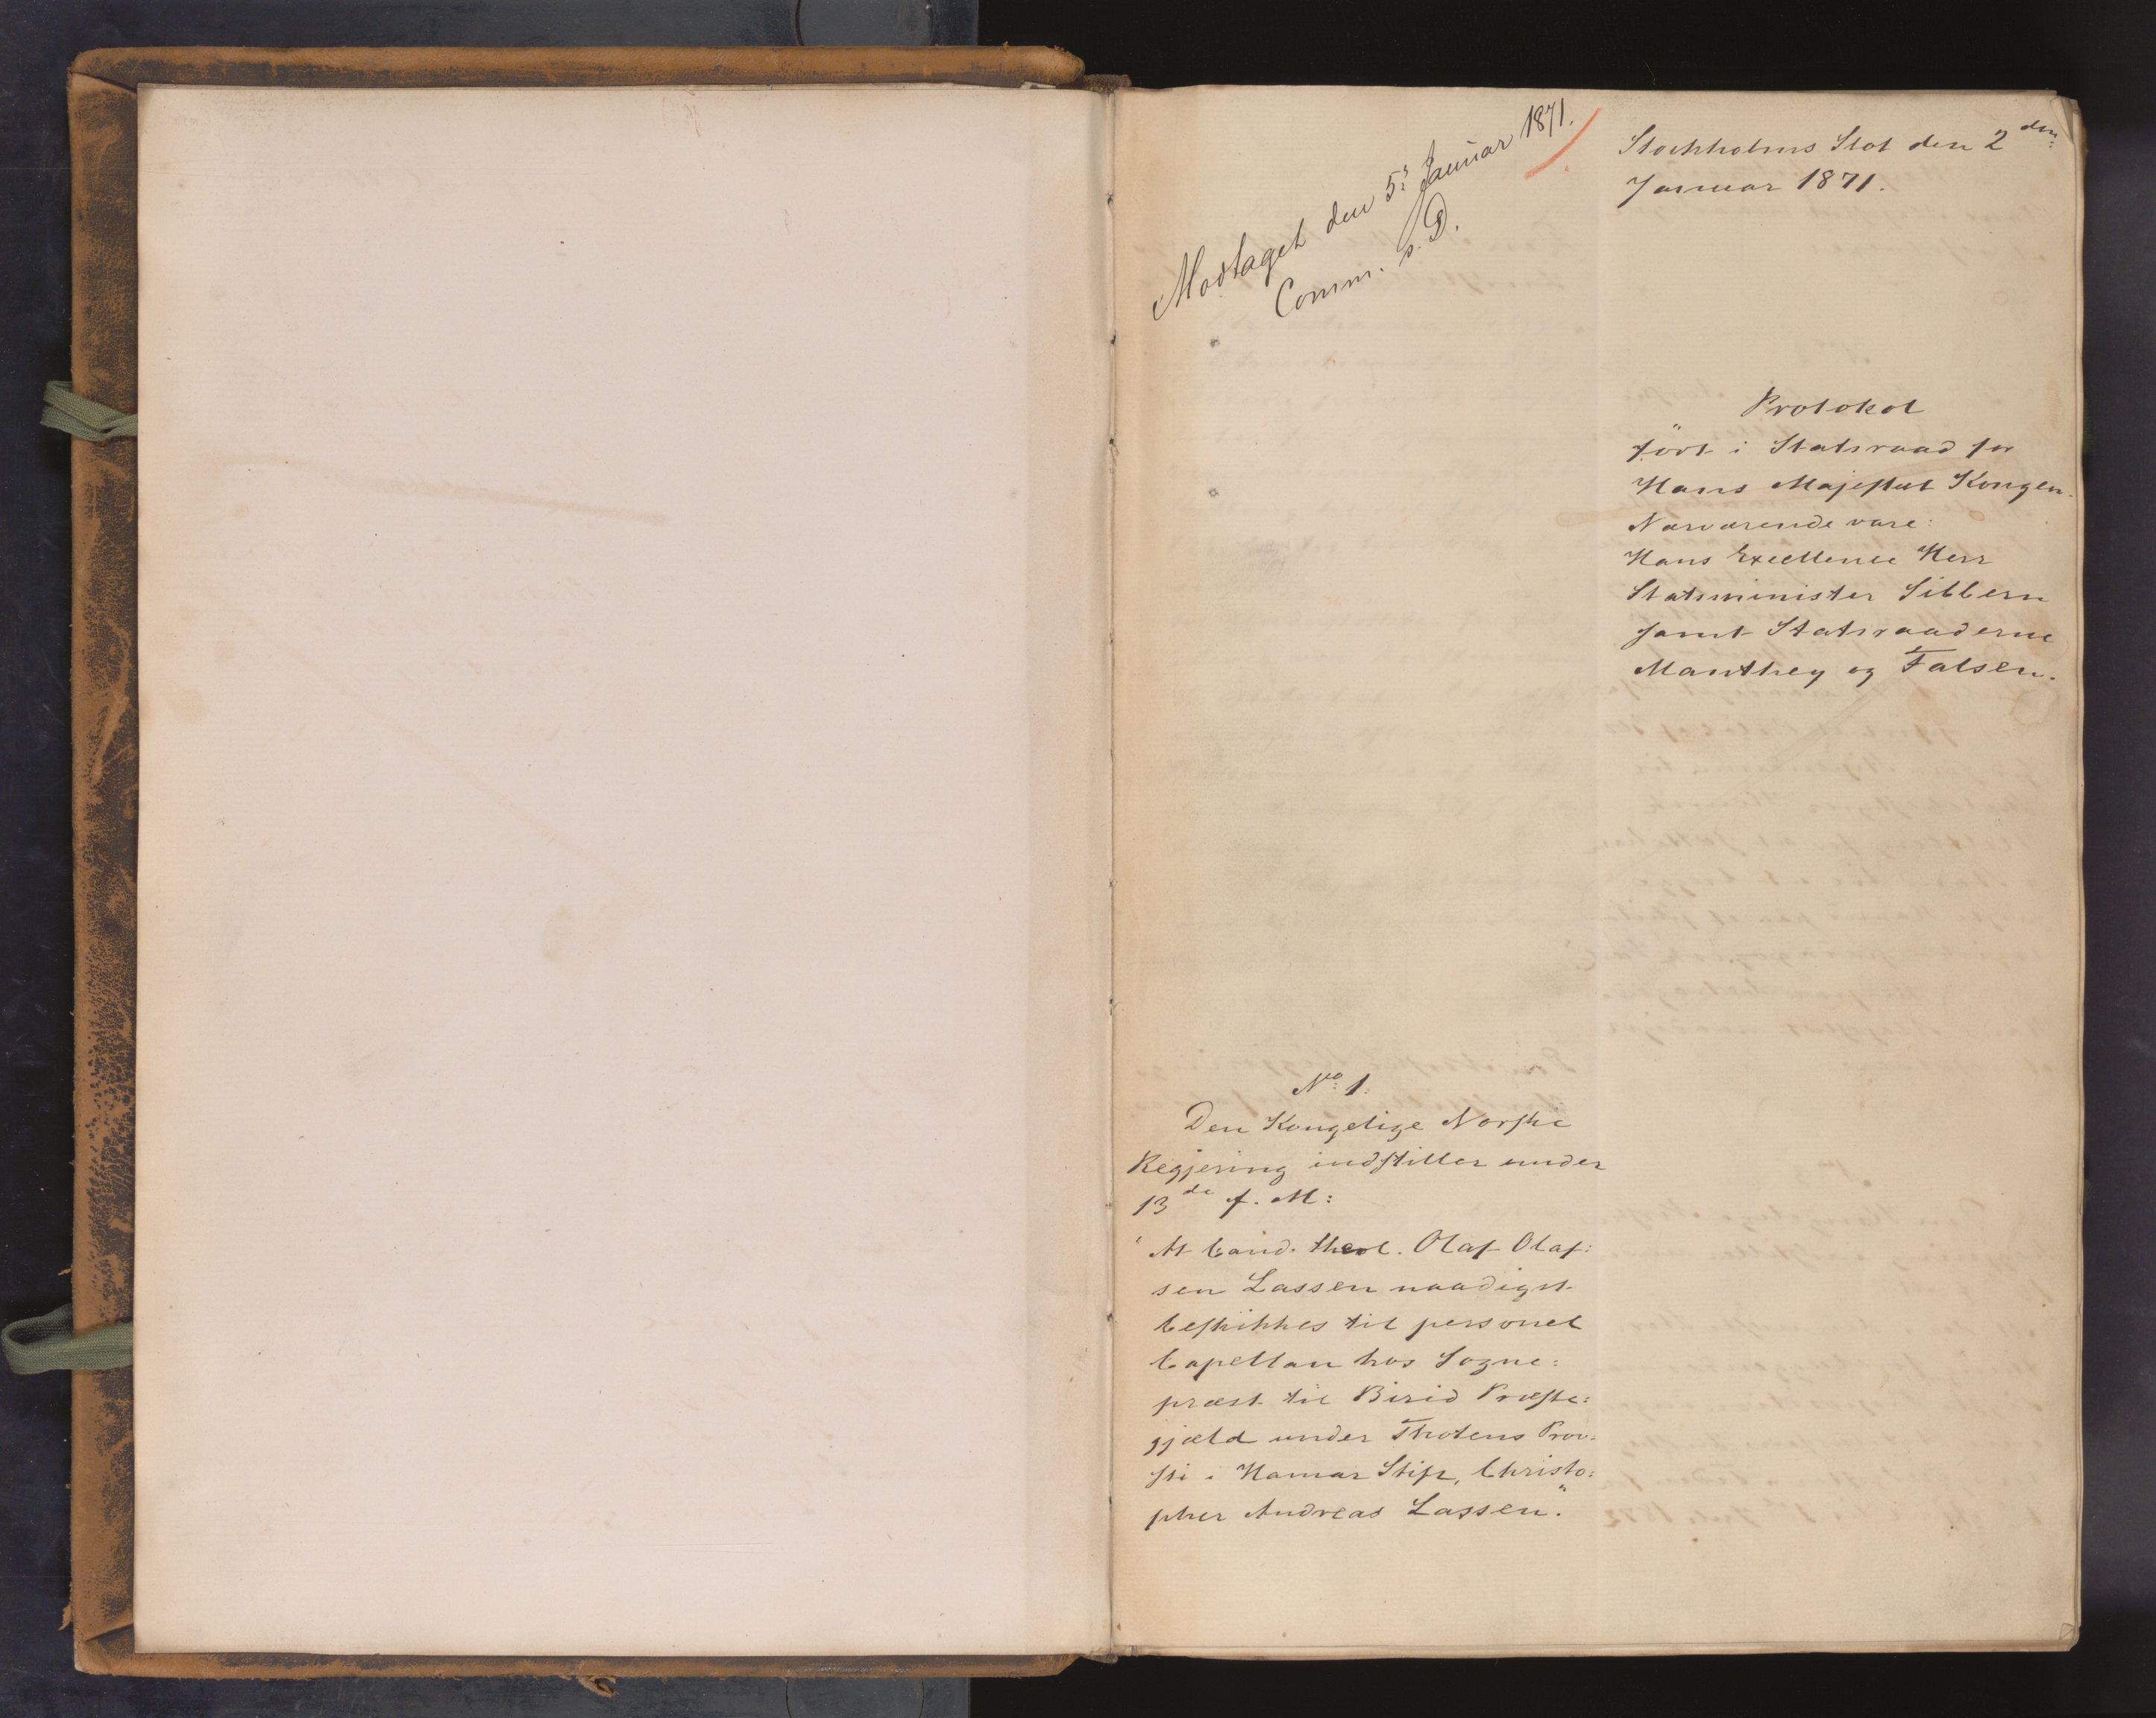 Modtaget den 5' Januar 1871.
Comm. s. D.
Stockholms Slot den 2den
Januar 1871.
Protokol
ført i Statsraad for
Hans Majestæt Kongen.
Nærværende vare:
Hans Excellence Herr
Statsminister Sibbern
samt Statsraaderne
Manthey og Falsen.
No 1.
Den Kongelige Norske
Regjering indstiller under
13de f. M:
"At Cand. theol. Olaf Olaf:
sen Lassen naadigst
beskikkes til personel
Capellan hos Sogne:
præst til Birid Præste:
gjæld under Thotens Prov:
sti i Hamar Stift, Christo:
pher Andreas Lassen."